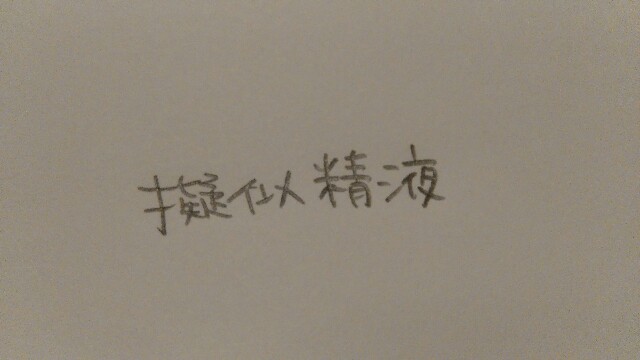 擬似精液